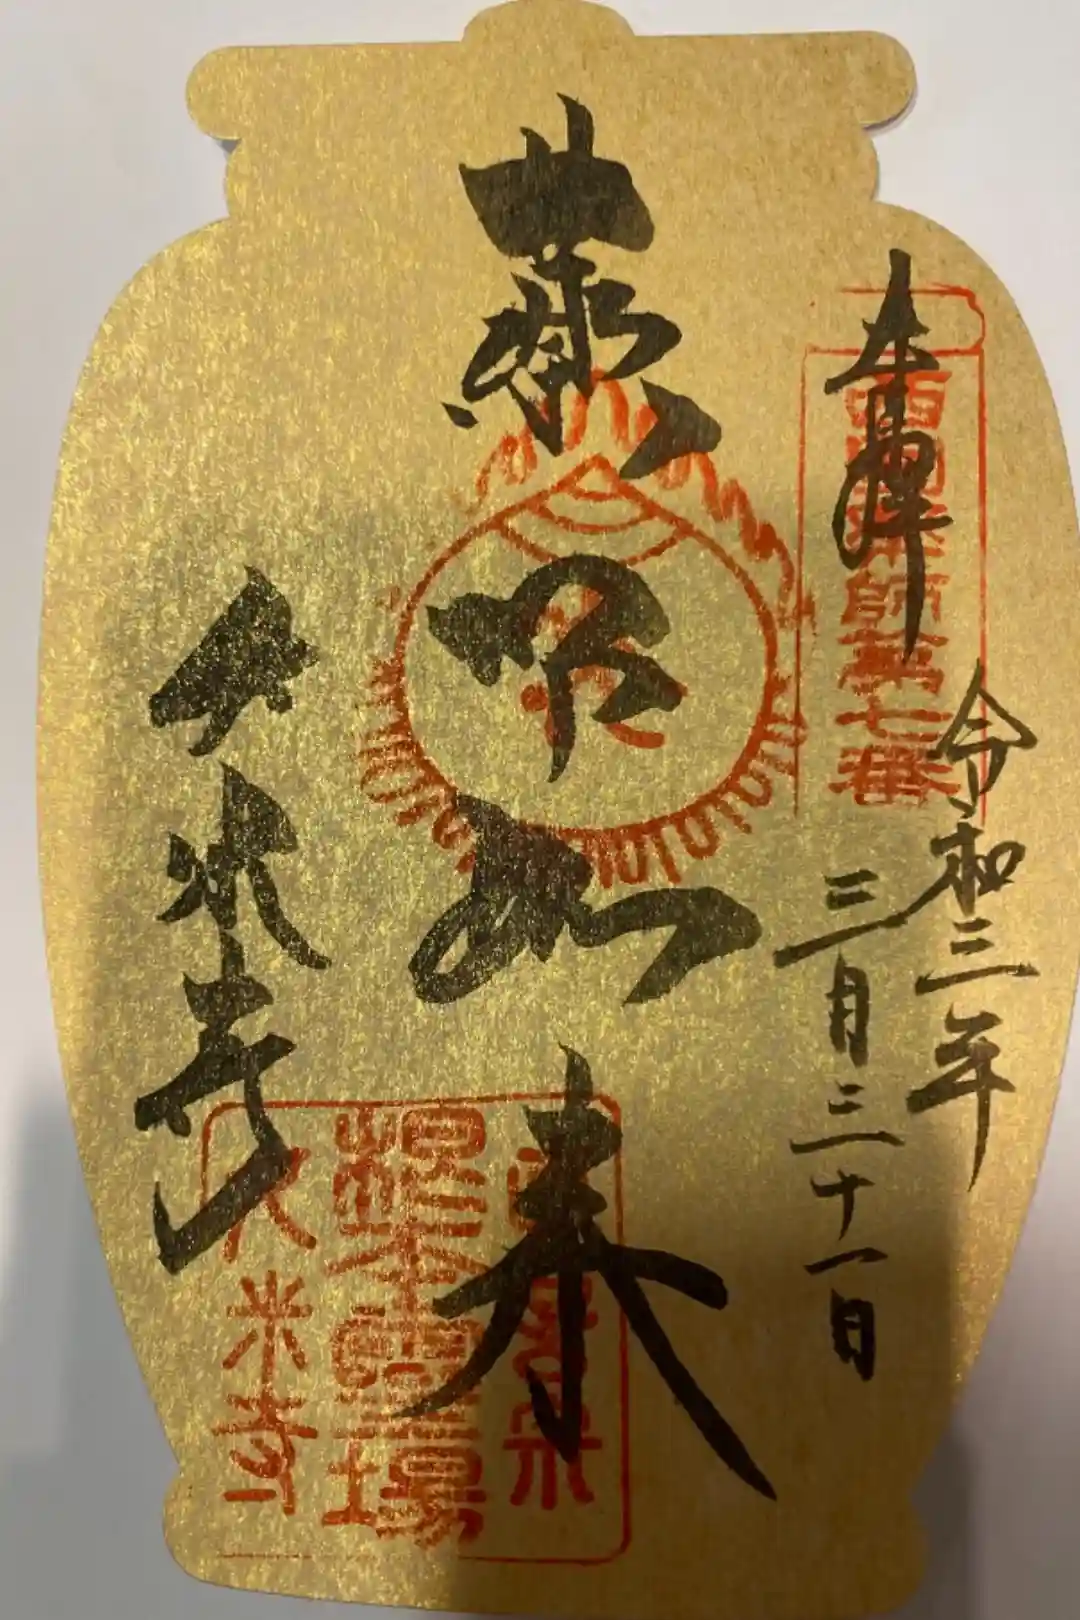 奉拝
西国薬師第七番
令和三年
三月三十一日
薬師如来
久米寺
根本霊場
久米寺